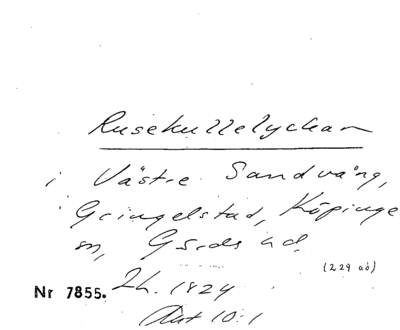 Rusekullelyckan
i Västre Sandvång,
Gringelstad, Köpinge
sn, Gärds hd.
(229 aö)
Nr 7855. Lh. 1824
Akt 10:1